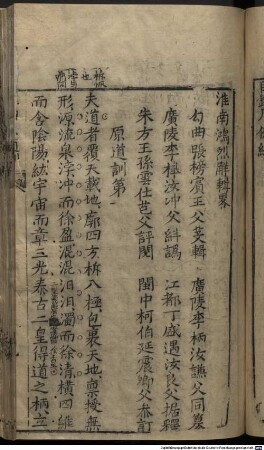 淮南鴻烈解輯畧
勾曲張榜賓王父芟輯　廣陵李栖汝譙父同纂
廣陵李樟汝沖父糾譌　江都丁盛遇汝良父攟釋
朱方王孫雲仕芑父評閱　閩中柯伯延震卿父叅訂
原道訓第一
夫道者覆天載地廓四方柝八極包裹天地稟授無
形源流泉浡沖而徐盈混混汩汩濁而徐清橫四維
而含陰陽紘宇宙而章三光泰古二皇得道之柄立